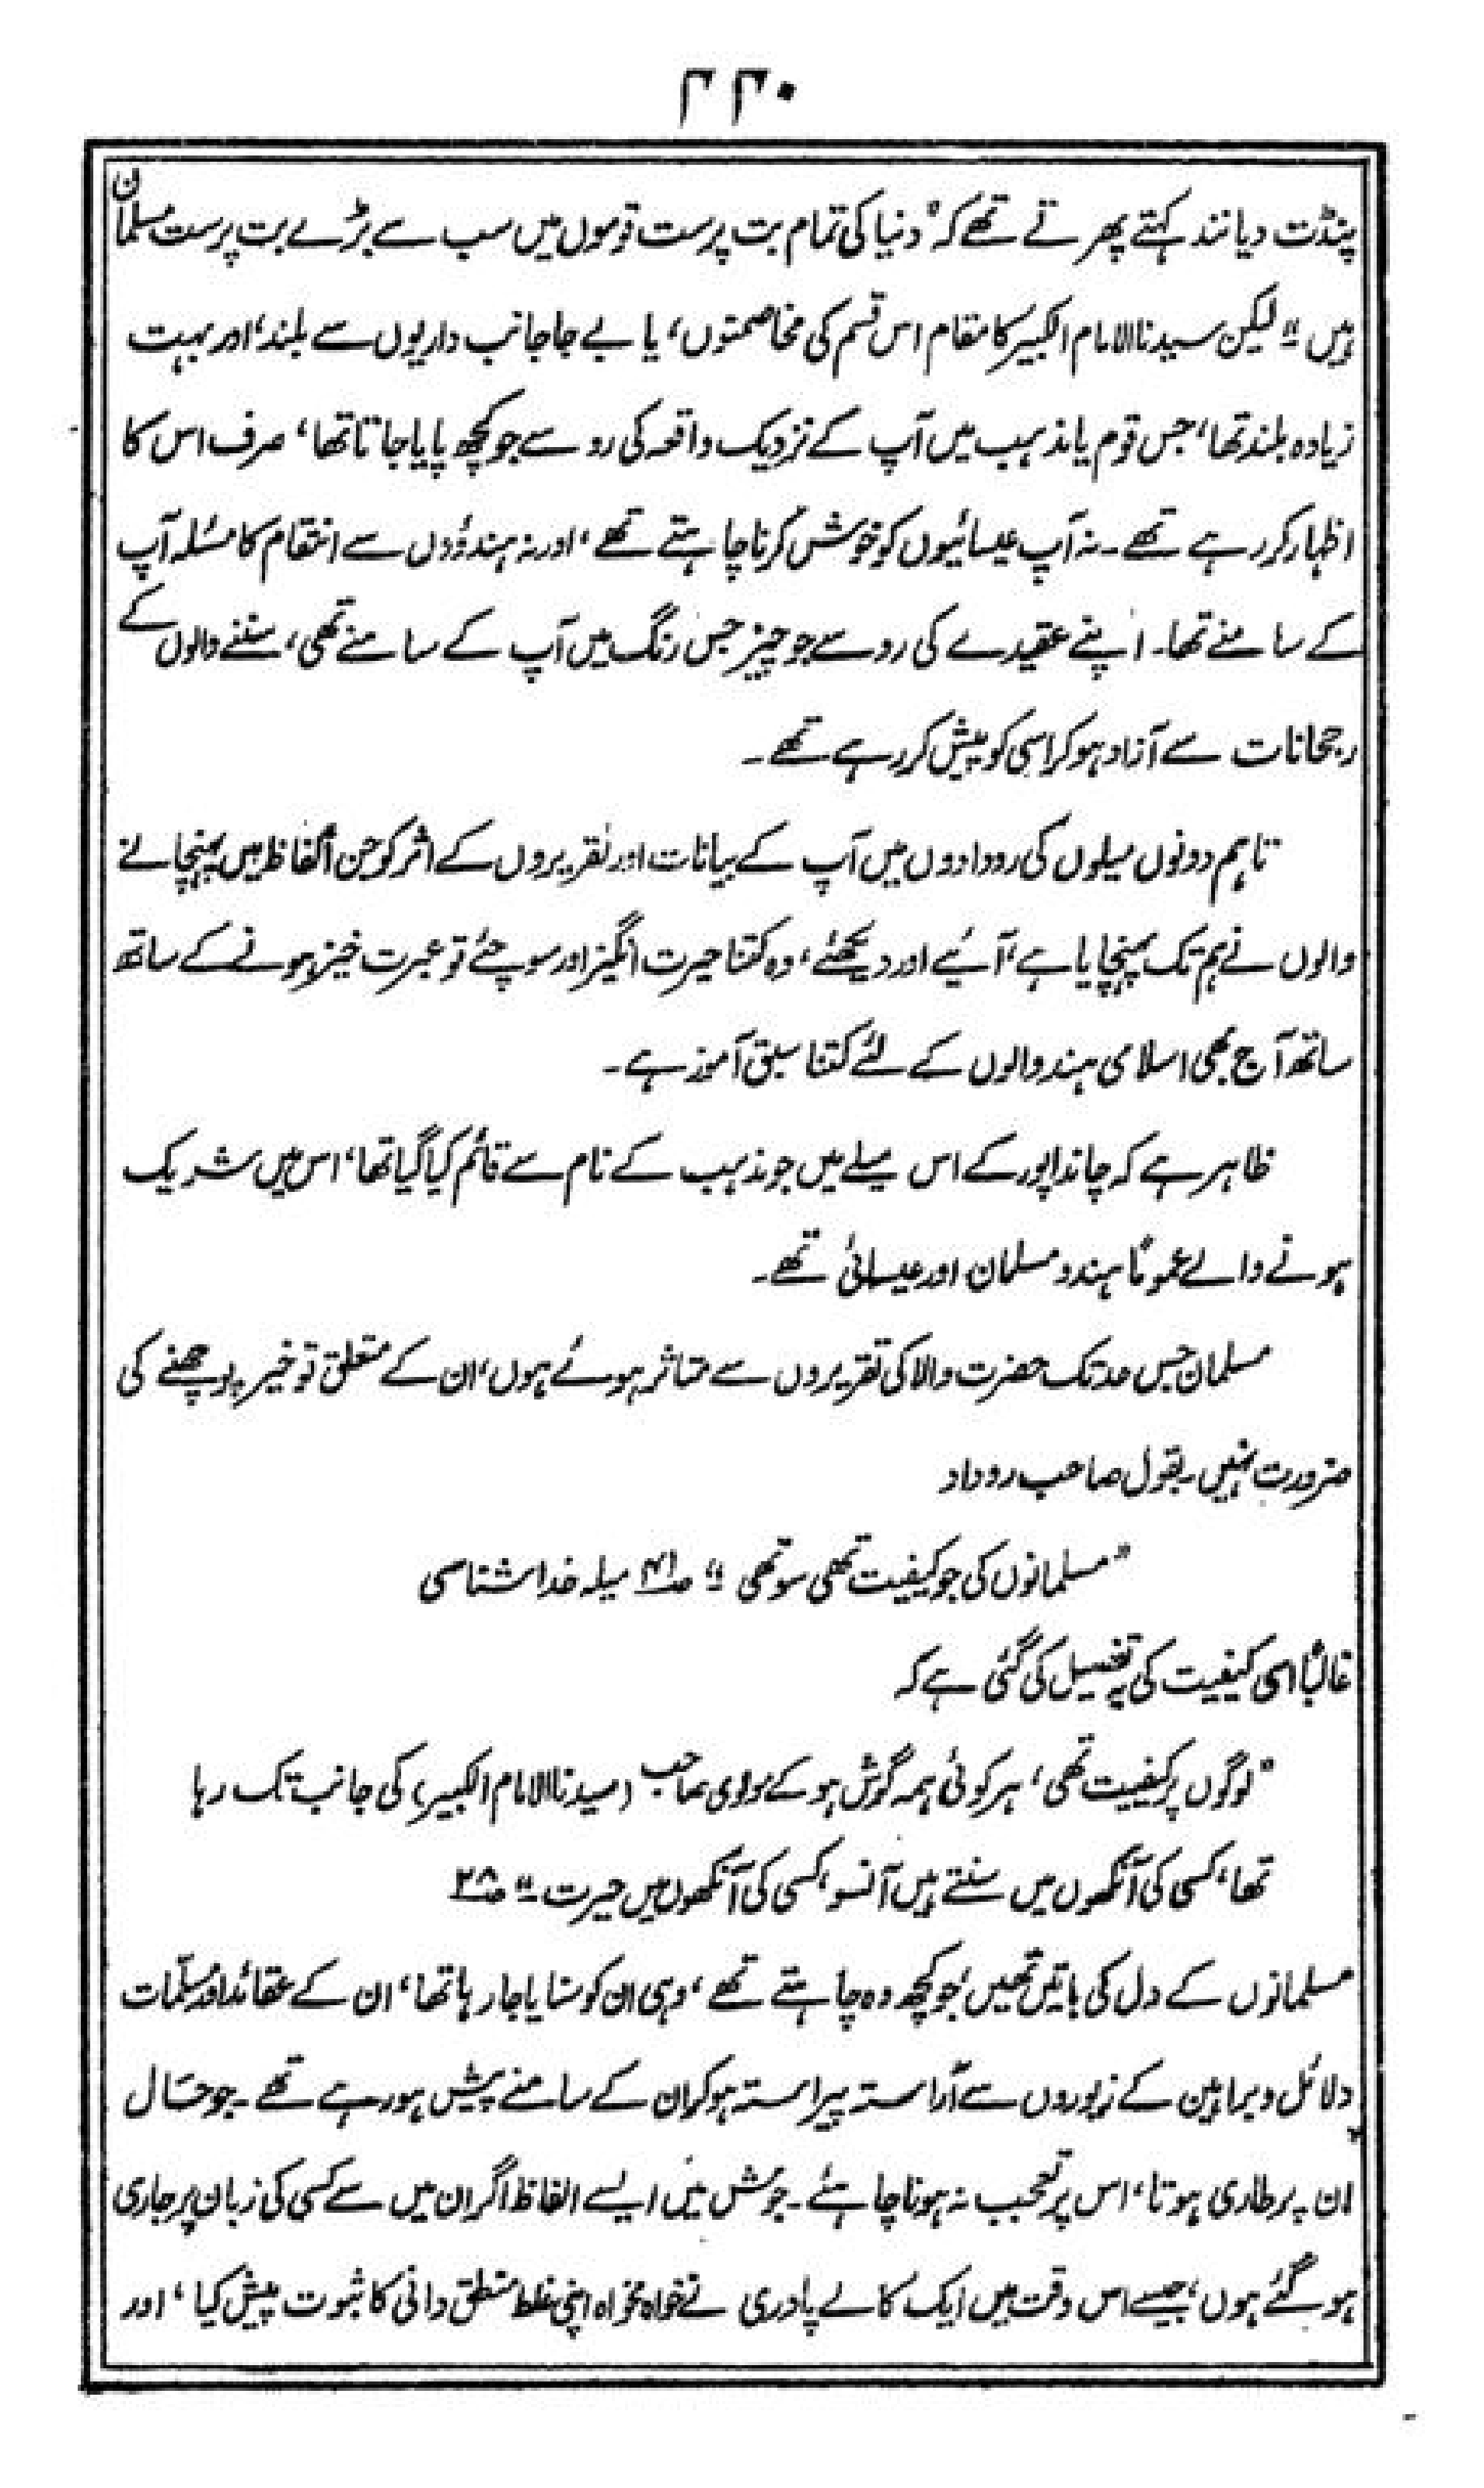 ۴۴۰
پنڈت دیانند کہتے پھرتے تھے کہ "دنیا کی تمام بت پرست قوموں میں سب سے بڑے بت پرست مسلمان
ہیں" لیکن سیدنا الامام الکبیر کا مقام اس قسم کی مخاصمتوں، یا بے جا جانب داریوں سے بلند، اور بہت
زیادہ بلند تھا، جس قوم یا مذہب میں آپ کے نزدیک واقعہ کی رو سے جو کچھ پایا جاتا تھا، صرف اس کا
اظہار کر رہے تھے۔ نہ آپ عیسائیوں کو خوش کرنا چاہتے تھے، اور نہ ہندوؤں سے انتقام کا مسئلہ آپ
کے سامنے تھا۔ اپنے عقیدے کی رو سے جو چیز جس رنگ میں آپ کے سامنے تھی، سننے والوں کے
رجحانات سے آزاد ہوکر اسی کو پیش کر رہے تھے۔
تاہم دونوں میلوں کی رودادوں میں آپ کے بیانات اور تقریروں کے اثر کو جن الفاظ میں پہنچانے
والوں نے ہم تک پہنچایا ہے، آئیے اور دیکھئے، وہ کتنا حیرت انگیز اور سوچئے تو عبرت خیز ہونے کے ساتھ
ساتھ آج بھی اسلامی ہند والوں کے لئے کتنا سبق آموز ہے۔
ظاہر ہے کہ چاندا پور کے اس میلے میں جو مذہب کے نام سے قائم کیا گیا تھا، اس میں شریک
ہونے والے عموماً ہندو مسلمان اور عیسائی تھے۔
مسلمان جس حد تک حضرت والا کی تقریروں سے متاثر ہوئے ہوں، ان کے متعلق تو خیر پوچھنے کی
ضرورت نہیں۔ بقول صاحب روداد
"مسلمانوں کی جو کیفیت تھی سو تھی" ص۴۱ میلہ خدا شناسی
غالباً اسی کیفیت کی یہ تفصیل کی گئی ہے کہ
"لوگوں پر کیفیت تھی، ہر کوئی ہمہ گوش ہو کے مولوی صاحب (سیدنا الامام الکبیر) کی جانب تک رہا
تھا، کسی کی آنکھوں میں سنتے ہیں آنسو، کسی کی آنکھوں میں حیرت" ص۲۸
مسلمانوں کے دل کی باتیں تھیں، جو کچھ وہ چاہتے تھے، وہی ان کو سنایا جا رہا تھا، ان کے عقائد اور مسلّمات
دلائل و براہین کے زیوروں سے آراستہ پیراستہ ہو کر ان کے سامنے پیش ہو رہے تھے۔ جو حال
ان پر طاری ہوتا، اس پر تعجب نہ ہونا چاہئے۔ جوش میں ایسے الفاظ اگر ان میں سے کسی کی زبان پر جاری
ہو گئے ہوں، جیسے اس وقت میں ایک کالے پادری نے خواہ مخواہ اپنی غلط منطق دانی کا ثبوت پیش کیا، اور